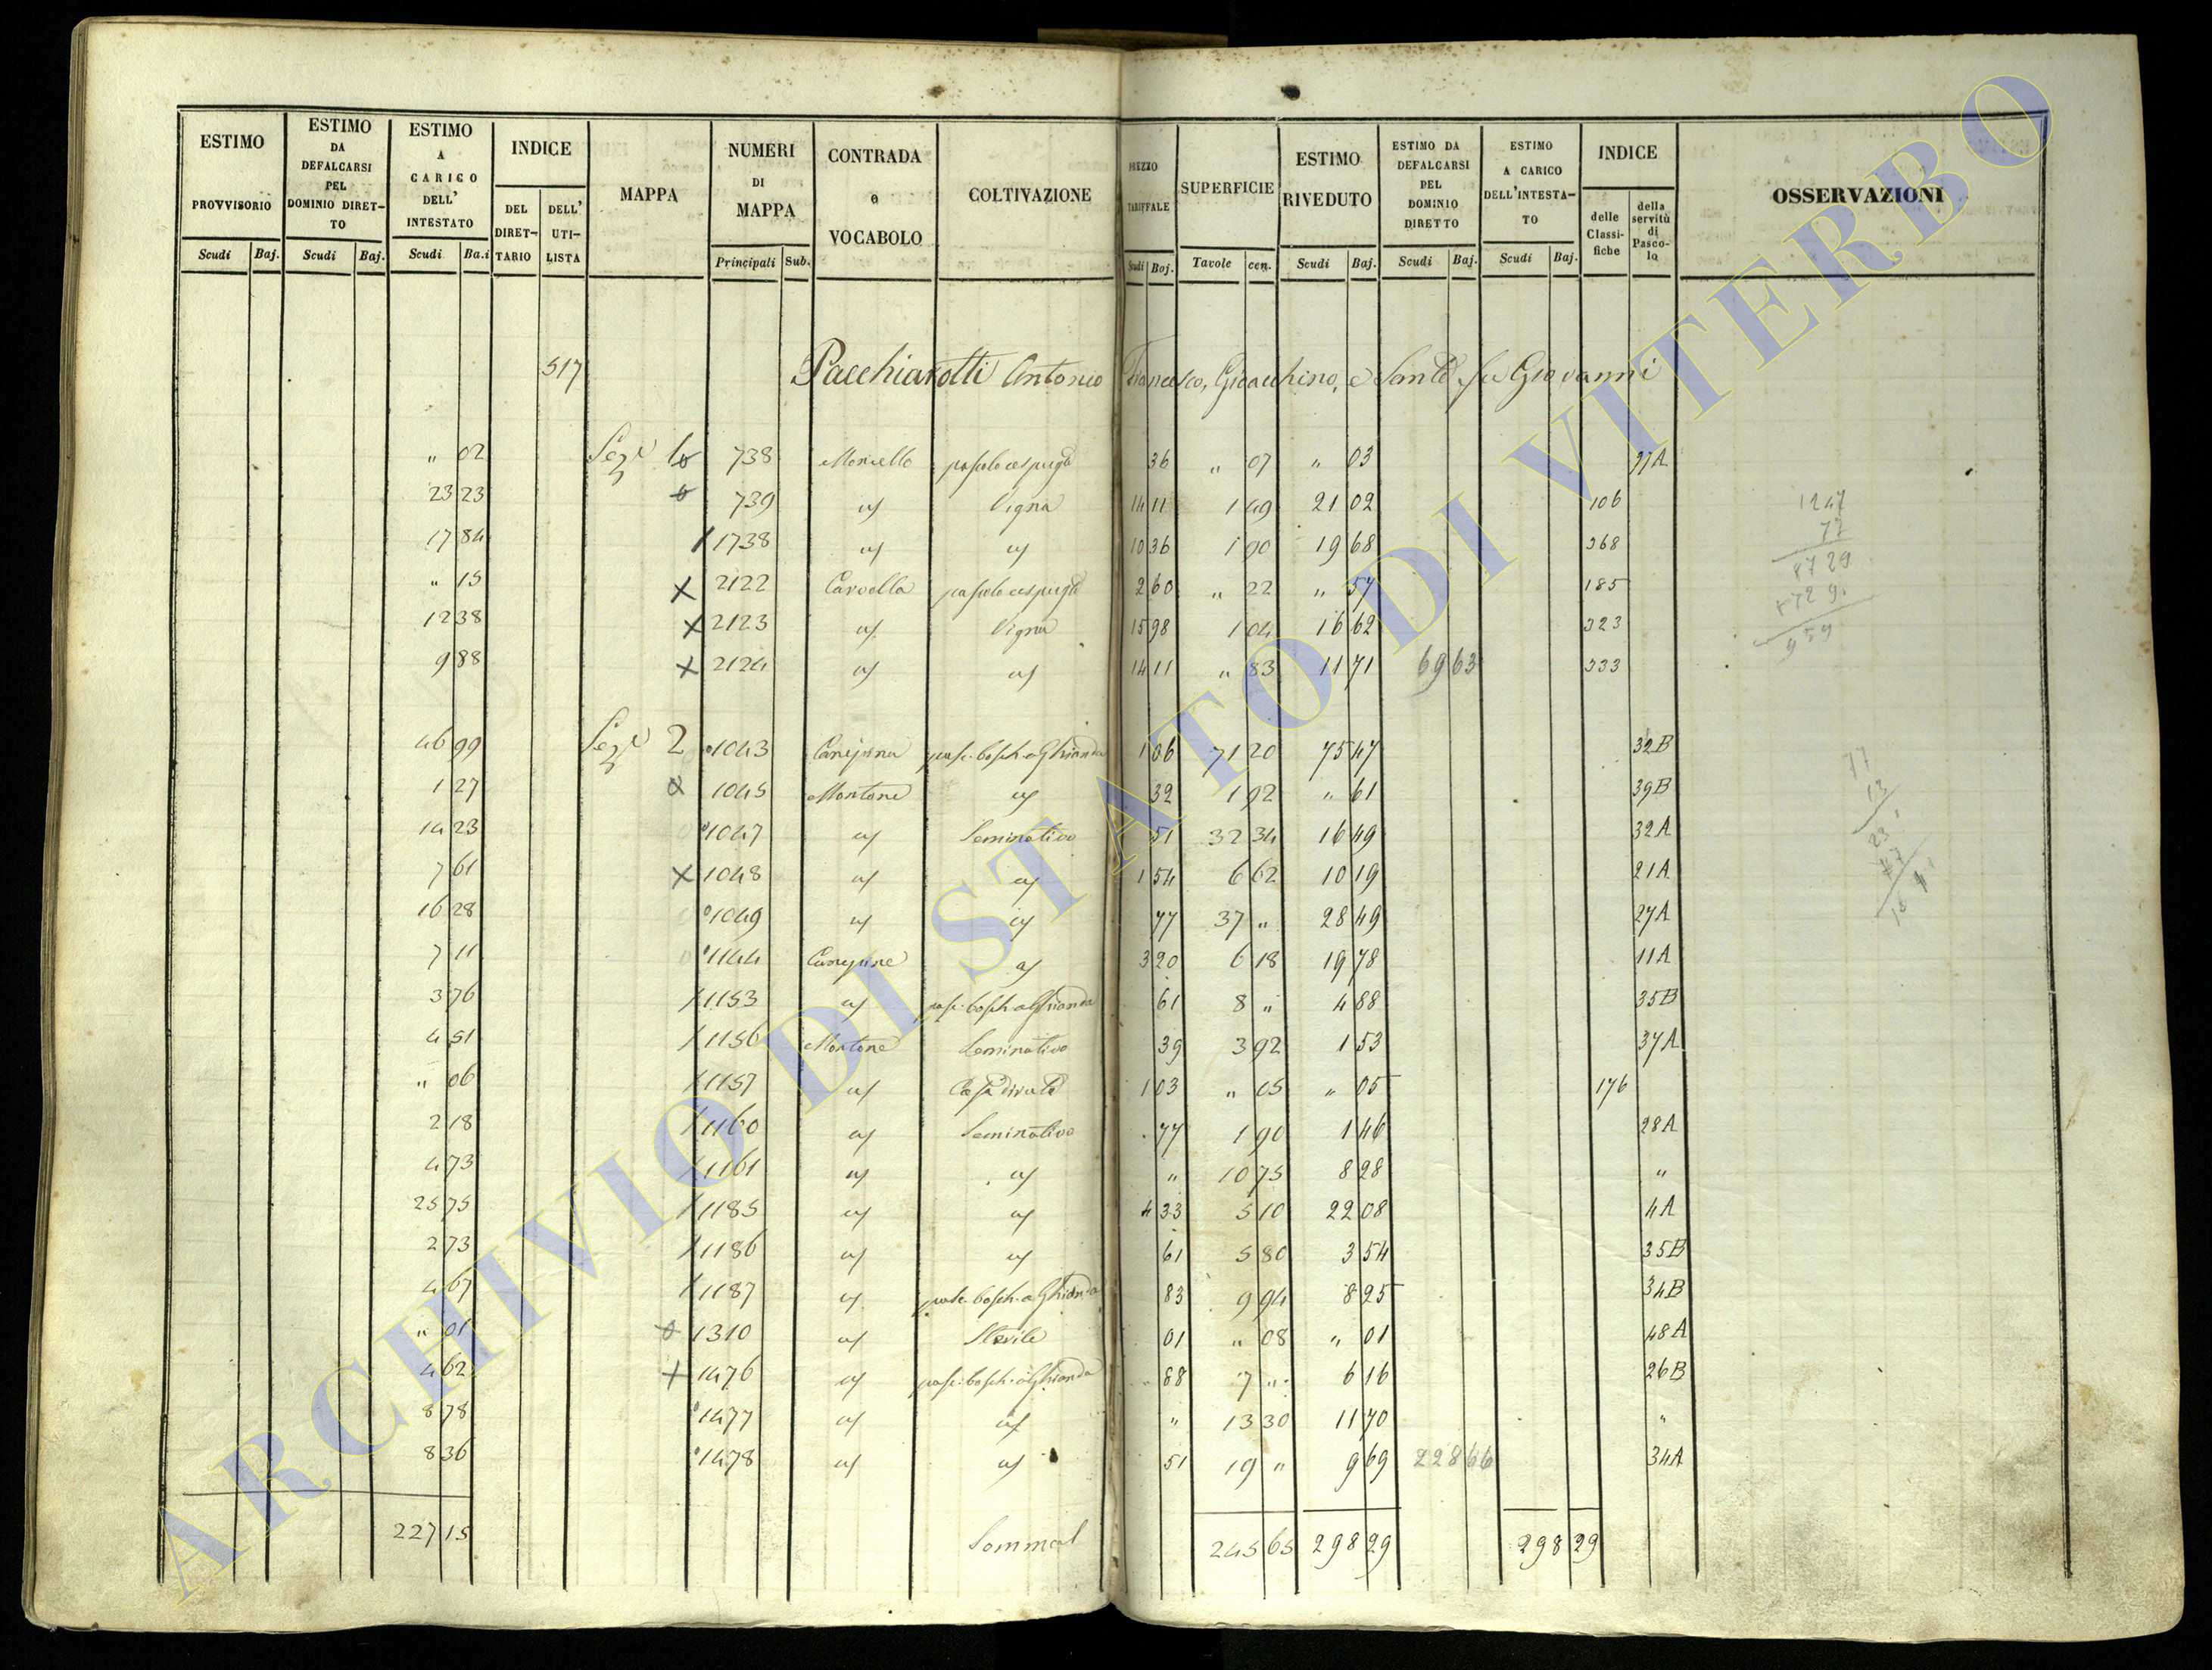 ESTIMO PROVVISORIO Scudi Baj.
ESTIMO DA DEFALCARSI PEL DOMINIO DIRETTO Scudi Baj.
ESTIMO A CARICO DELL' INTESTATO Scudi Ba.i
INDICE DEL DIRET-TARIO DELL' UTI-LISTA
MAPPA
NUMERI DI MAPPA Principali Sub.
CONTRADA o VOCABOLO
COLTIVAZIONE
PREZZO TARIFFALE Scudi Baj.
SUPERFICIE Tavole cen.
ESTIMO RIVEDUTO Scudi Baj.
ESTIMO DA DEFALCARSI PEL DOMINIO DIRETTO Scudi Baj.
ESTIMO A CARICO DELL'INTESTA-TO Scudi Baj.
INDICE delle Classi-fiche della servitù di Pasco-lo
OSSERVAZIONI
517 Pacchiarotti Antonio Francesco, Gioacchino, e Sante fu Giovanni
" 02 Sez.e 1 738 Moncello pascolo cespugto 36 " 07 " 03 37A
23 23 739 id Vigna 14 11 1 49 21 02 106
17 84 1738 id id 10 36 1 90 19 68 368
" 15 2122 Carvella pascolo cespugto 2 60 " 22 " 57 185
12 38 2123 id Vigna 15 98 1 04 16 62 323
9 88 2124 id id 14 11 " 83 11 71 69 63 333
46 99 Sez.e 2 1043 Canepina pasc. bosch. a Ghianda 1 06 71 20 75 47 32B
1 27 1045 Montone id 32 1 92 " 61 39B
14 23 1047 id Seminativo 51 32 34 16 49 32A
7 61 1048 id id 1 54 6 62 10 19 21A
16 28 1049 id id 77 37 " 28 49 27A
7 11 1144 Canepine id 3 20 6 18 19 78 11A
3 76 1153 id pasc. bosch. a Ghianda 61 8 " 4 88 35B
4 51 1156 Montone Seminativo 39 3 92 1 53 37A
" 06 1157 id Casa diruta 1 03 " 05 " 05 176
2 18 1160 id Seminativo 77 1 90 1 46 28A
4 73 1161 id id " 10 75 8 28 "
25 75 1185 id id 4 33 5 10 22 08 4A
2 73 1186 id id 61 5 80 3 54 35B
4 67 1187 id pasc. bosch. a Ghianda 83 9 94 8 25 34B
" 01 1310 id Sterile 01 " 08 " 01 48A
4 62 1476 id pasc. bosch. a Ghianda 88 7 " 6 16 26B
8 78 1477 id id " 13 30 11 70 "
8 36 1478 id id 51 19 " 9 69 228 66 34A
227 15 Sommal 245 65 298 29 298 29
1247
77
8729
8729
959
77
13
23
ARCHIVIO DI STATO DI VITERBO